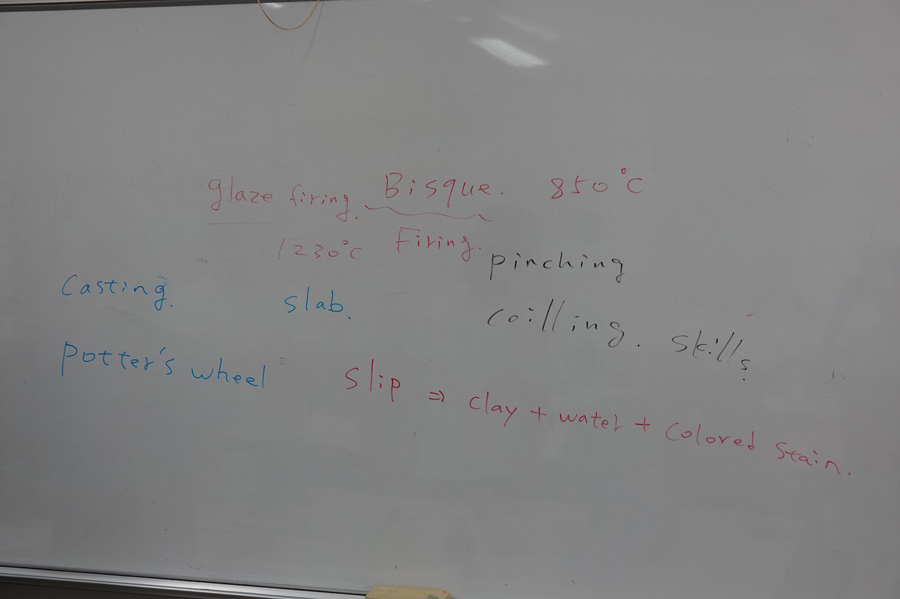 glaze firing. Bisque. 850°C
1230°C Firing.
pinching
Casting. slab. coilling. skills.
potter's wheel
slip ⇒ clay + water + colored stain.